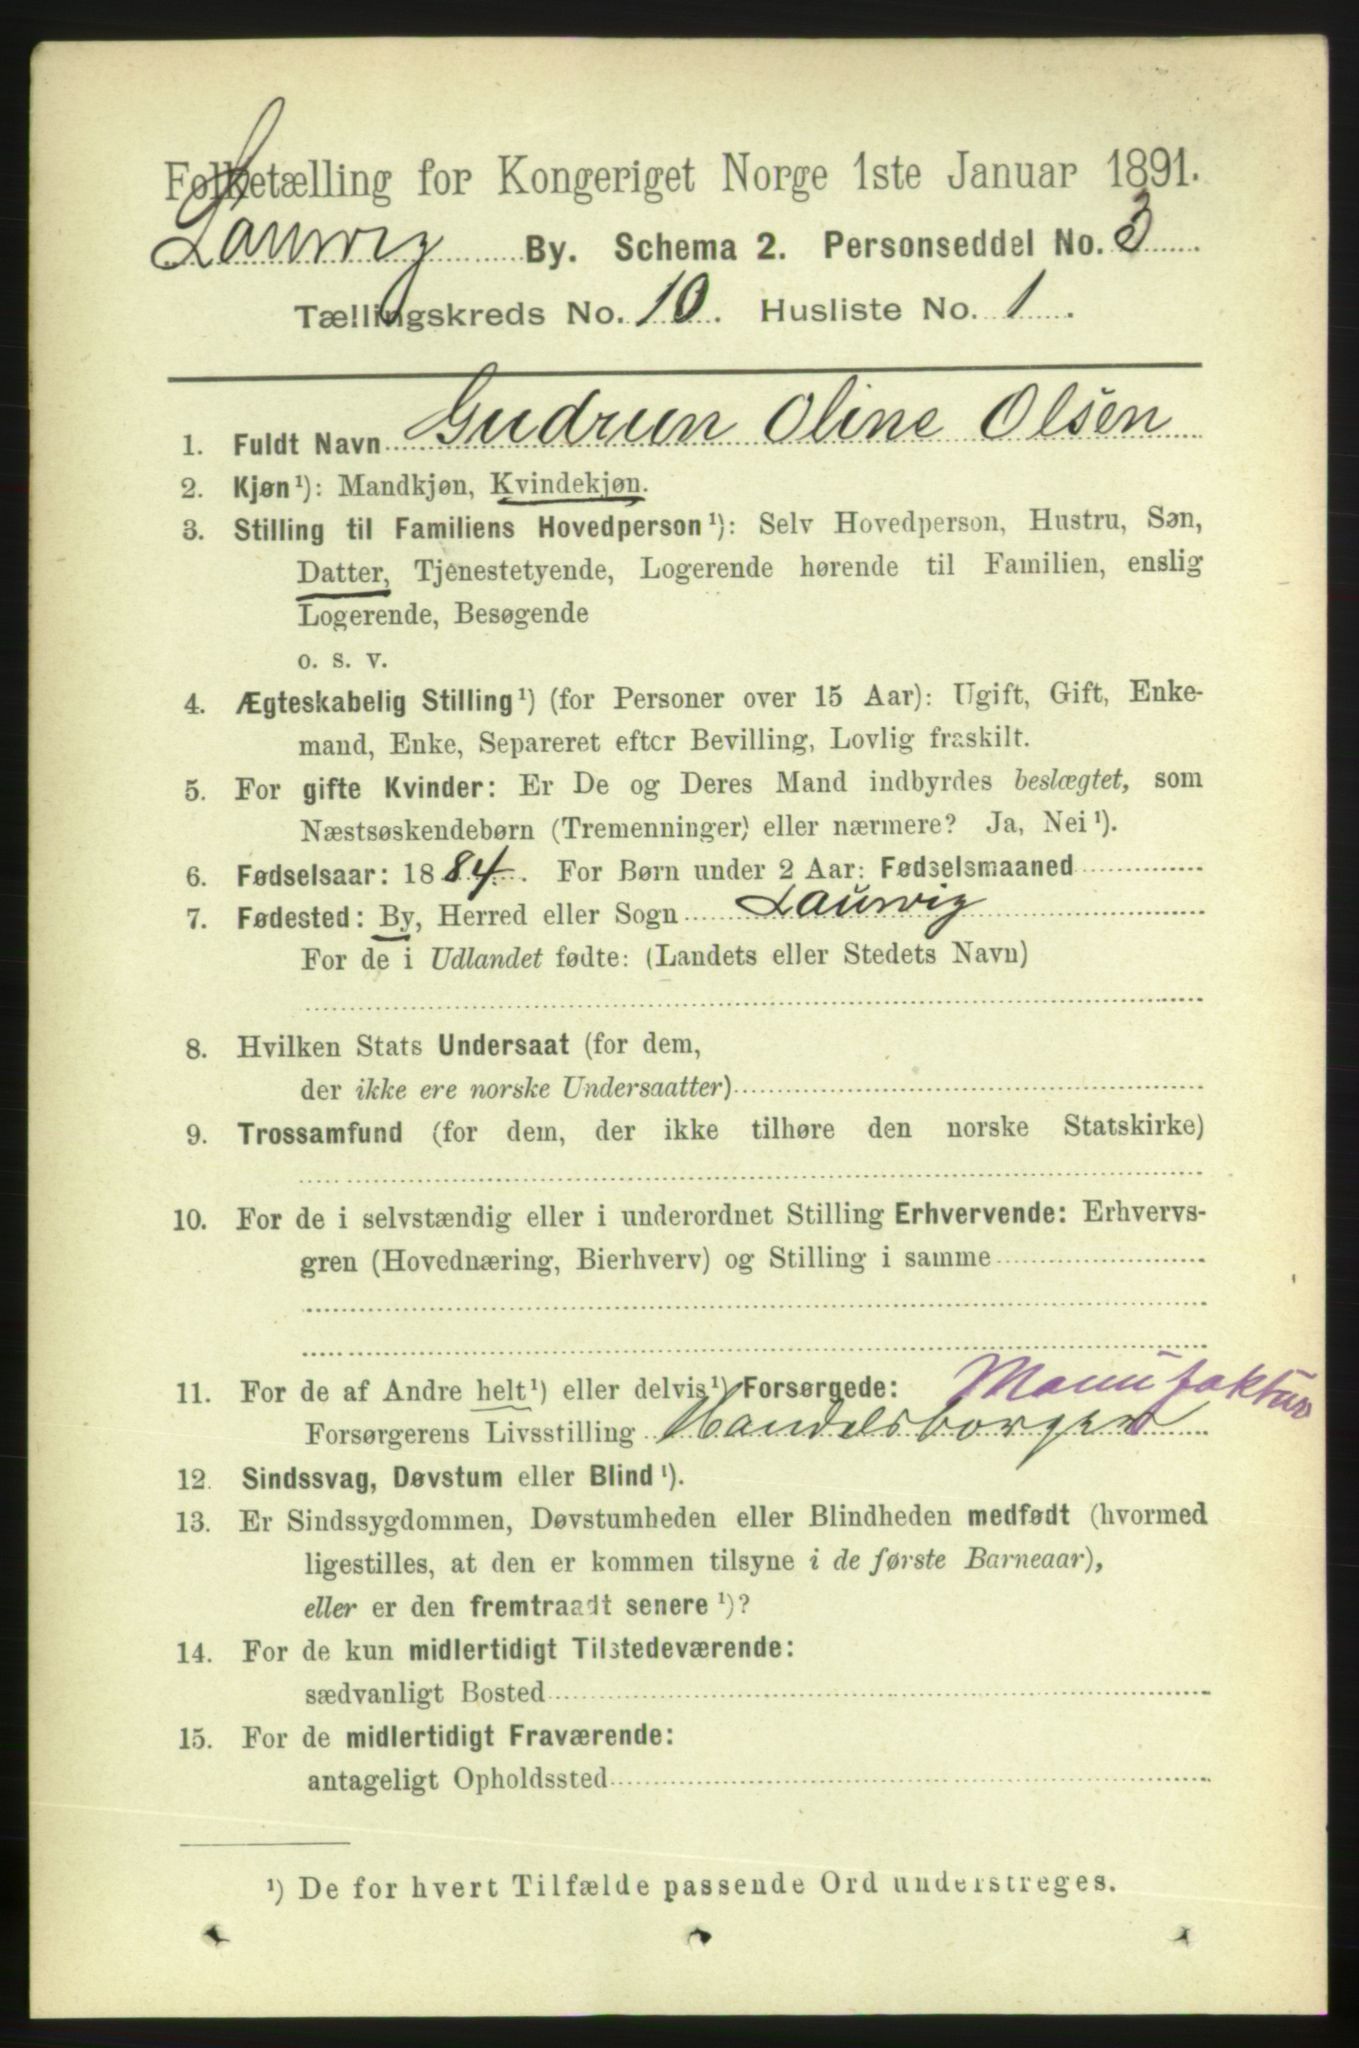 Folketælling for Kongeriget Norge 1ste Januar 1891.
Laurvig By. Schema 2. Personseddel No. 3
Tællingskreds No. 10. Husliste No. 1.
1. Fuldt Navn Gudrun Oline Olsen
2. Kjøn¹): Mandkjøn, Kvindekjøn.
3. Stilling til Familiens Hovedperson¹): Selv Hovedperson, Hustru, Søn,
Datter, Tjenestetyende, Logerende hørende til Familien, enslig
Logerende, Besøgende
o. s. v.
4. Ægteskabelig Stilling¹) (for Personer over 15 Aar): Ugift, Gift, Enke-
mand, Enke, Separeret efter Bevilling, Lovlig fraskilt.
5. For gifte Kvinder: Er De og Deres Mand indbyrdes beslægtet, som
Næstsøskendebørn (Tremenninger) eller nærmere? Ja, Nei¹).
6. Fødselsaar: 1884. For Børn under 2 Aar: Fødselsmaaned
7. Fødested: By, Herred eller Sogn Laurvig
For de i Udlandet fødte: (Landets eller Stedets Navn)
8. Hvilken Stats Undersaat (for dem,
der ikke ere norske Undersaatter)
9. Trossamfund (for dem, der ikke tilhøre den norske Statskirke)
10. For de i selvstændig eller i underordnet Stilling Erhvervende: Erhvervs-
gren (Hovednæring, Bierhverv) og Stilling i samme
11. For de af Andre helt¹) eller delvis¹) Forsørgede: Manufaktur
Forsørgerens Livsstilling Handelsborger
12. Sindssvag, Døvstum eller Blind¹).
13. Er Sindssygdommen, Døvstumheden eller Blindheden medfødt (hvormed
ligestilles, at den er kommen tilsyne i de første Barneaar),
eller er den fremtraadt senere¹)?
14. For de kun midlertidigt Tilstedeværende:
sædvanligt Bosted
15. For de midlertidigt Fraværende:
antageligt Opholdssted
¹) De for hvert Tilfælde passende Ord understreges.